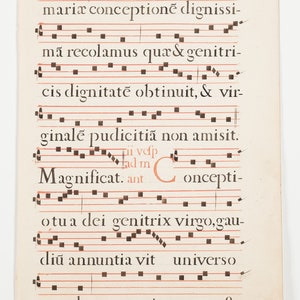 mariæ conceptionē dignissi-
mā recolamus quæ & genitri-
cis dignitatē obtinuit, & vir-
ginalē pudicitiā non amisit.
Magnificat. ad m ant Concepti-
o tua dei genitrix virgo, gau-
diū annuntia vit universo